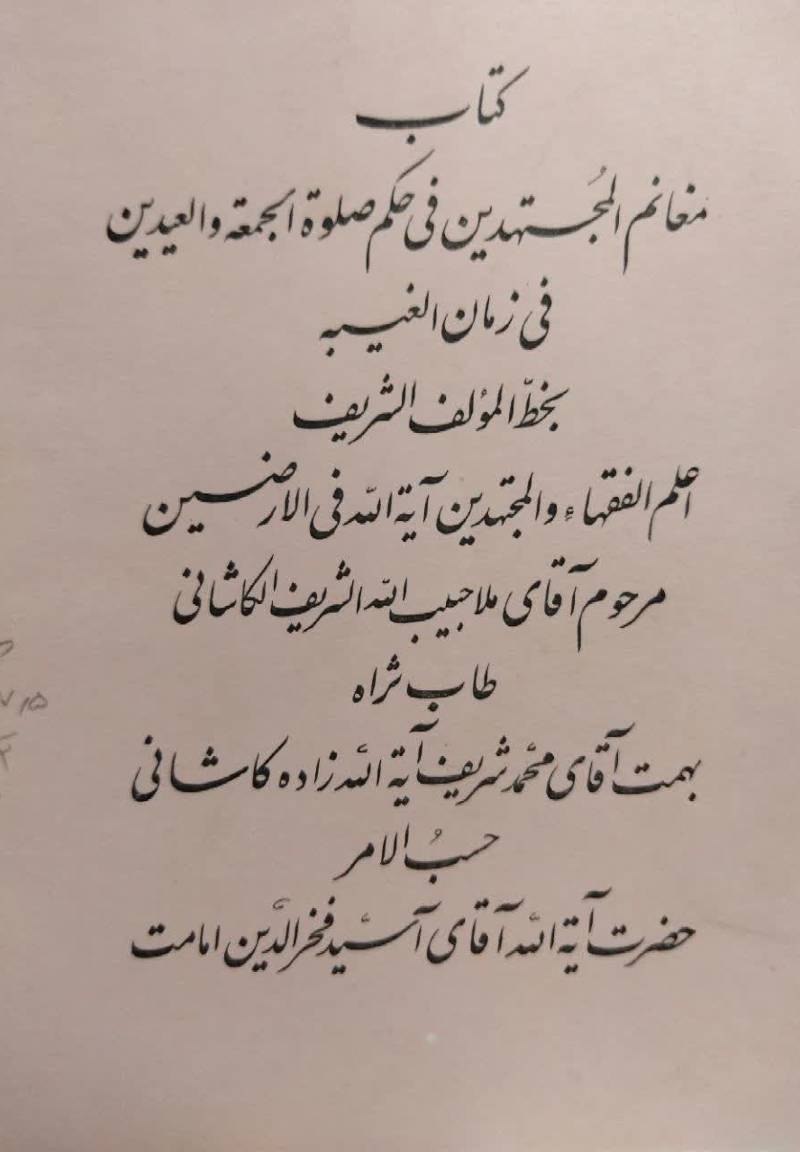 کتاب
مغانم المُجتهدین فی حکم صلوة الجمعة والعیدین
فی زمان الغیبه
بخطّ المؤلف الشریف
اعلم الفقهاء والمجتهدین آیة الله فی الارضین
مرحوم آقای ملا حبیب الله الشریف الکاشانی
طاب ثراه
بهمت آقای محمد شریف آیة الله زاده کاشانی
حسبُ الامر
حضرت آیة الله آقای آسید فخرالدّین امامت